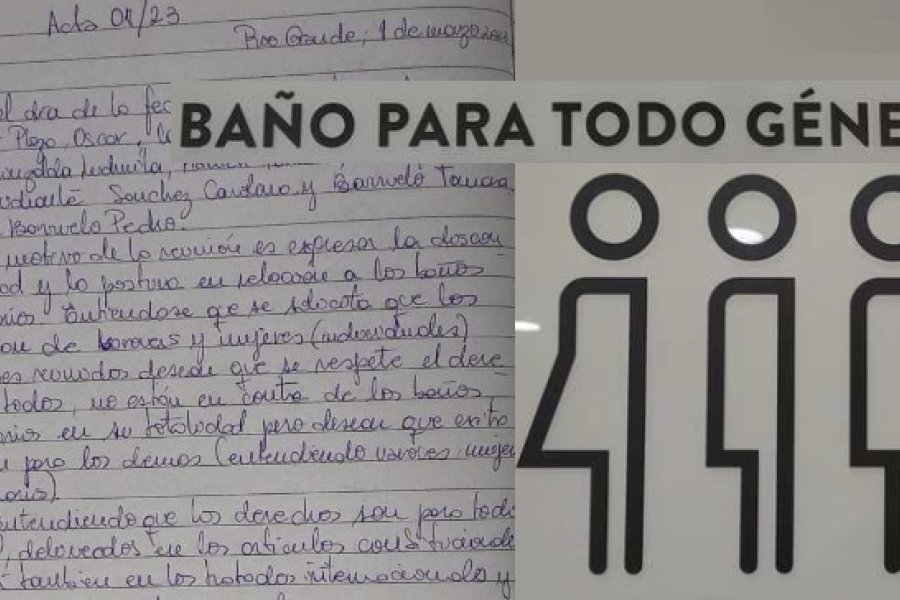 Acta 04/23
Rio Grande, 1 de marzo
el dia de la fec
Plaza Oscar,
Ludmila,
Sanchez Cardaro y Barruelo
Barruelo Pedro.
motivo de la reunión es expresar la discon
ad y la postura en relación a los baños
Entiendose qe se solicita que los
de varones y mujeres (individuales)
reunidos desean que se respete el dere
todos, no están en contra de los baños
en su totalidad pero desean que exita
para los demas (entendiendo varones, mujer
entendiendo que los derechos son para todo
delineados en los articulos constitucionale
también en los tratados internacionales y
BAÑO PARA TODO GÉNE